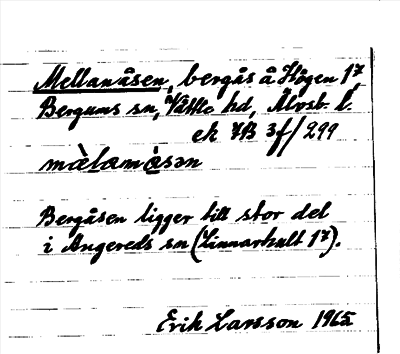 Mellanåsen, bergås å Högen 1⁷
Bergums sn, Vättle hd, Älvsb. l.
ek 7B 3f/299
mèlamàsən
Bergåsen ligger till stor del
i Angereds sn (Linnarhult 1⁷).
Erik Larsson 1965